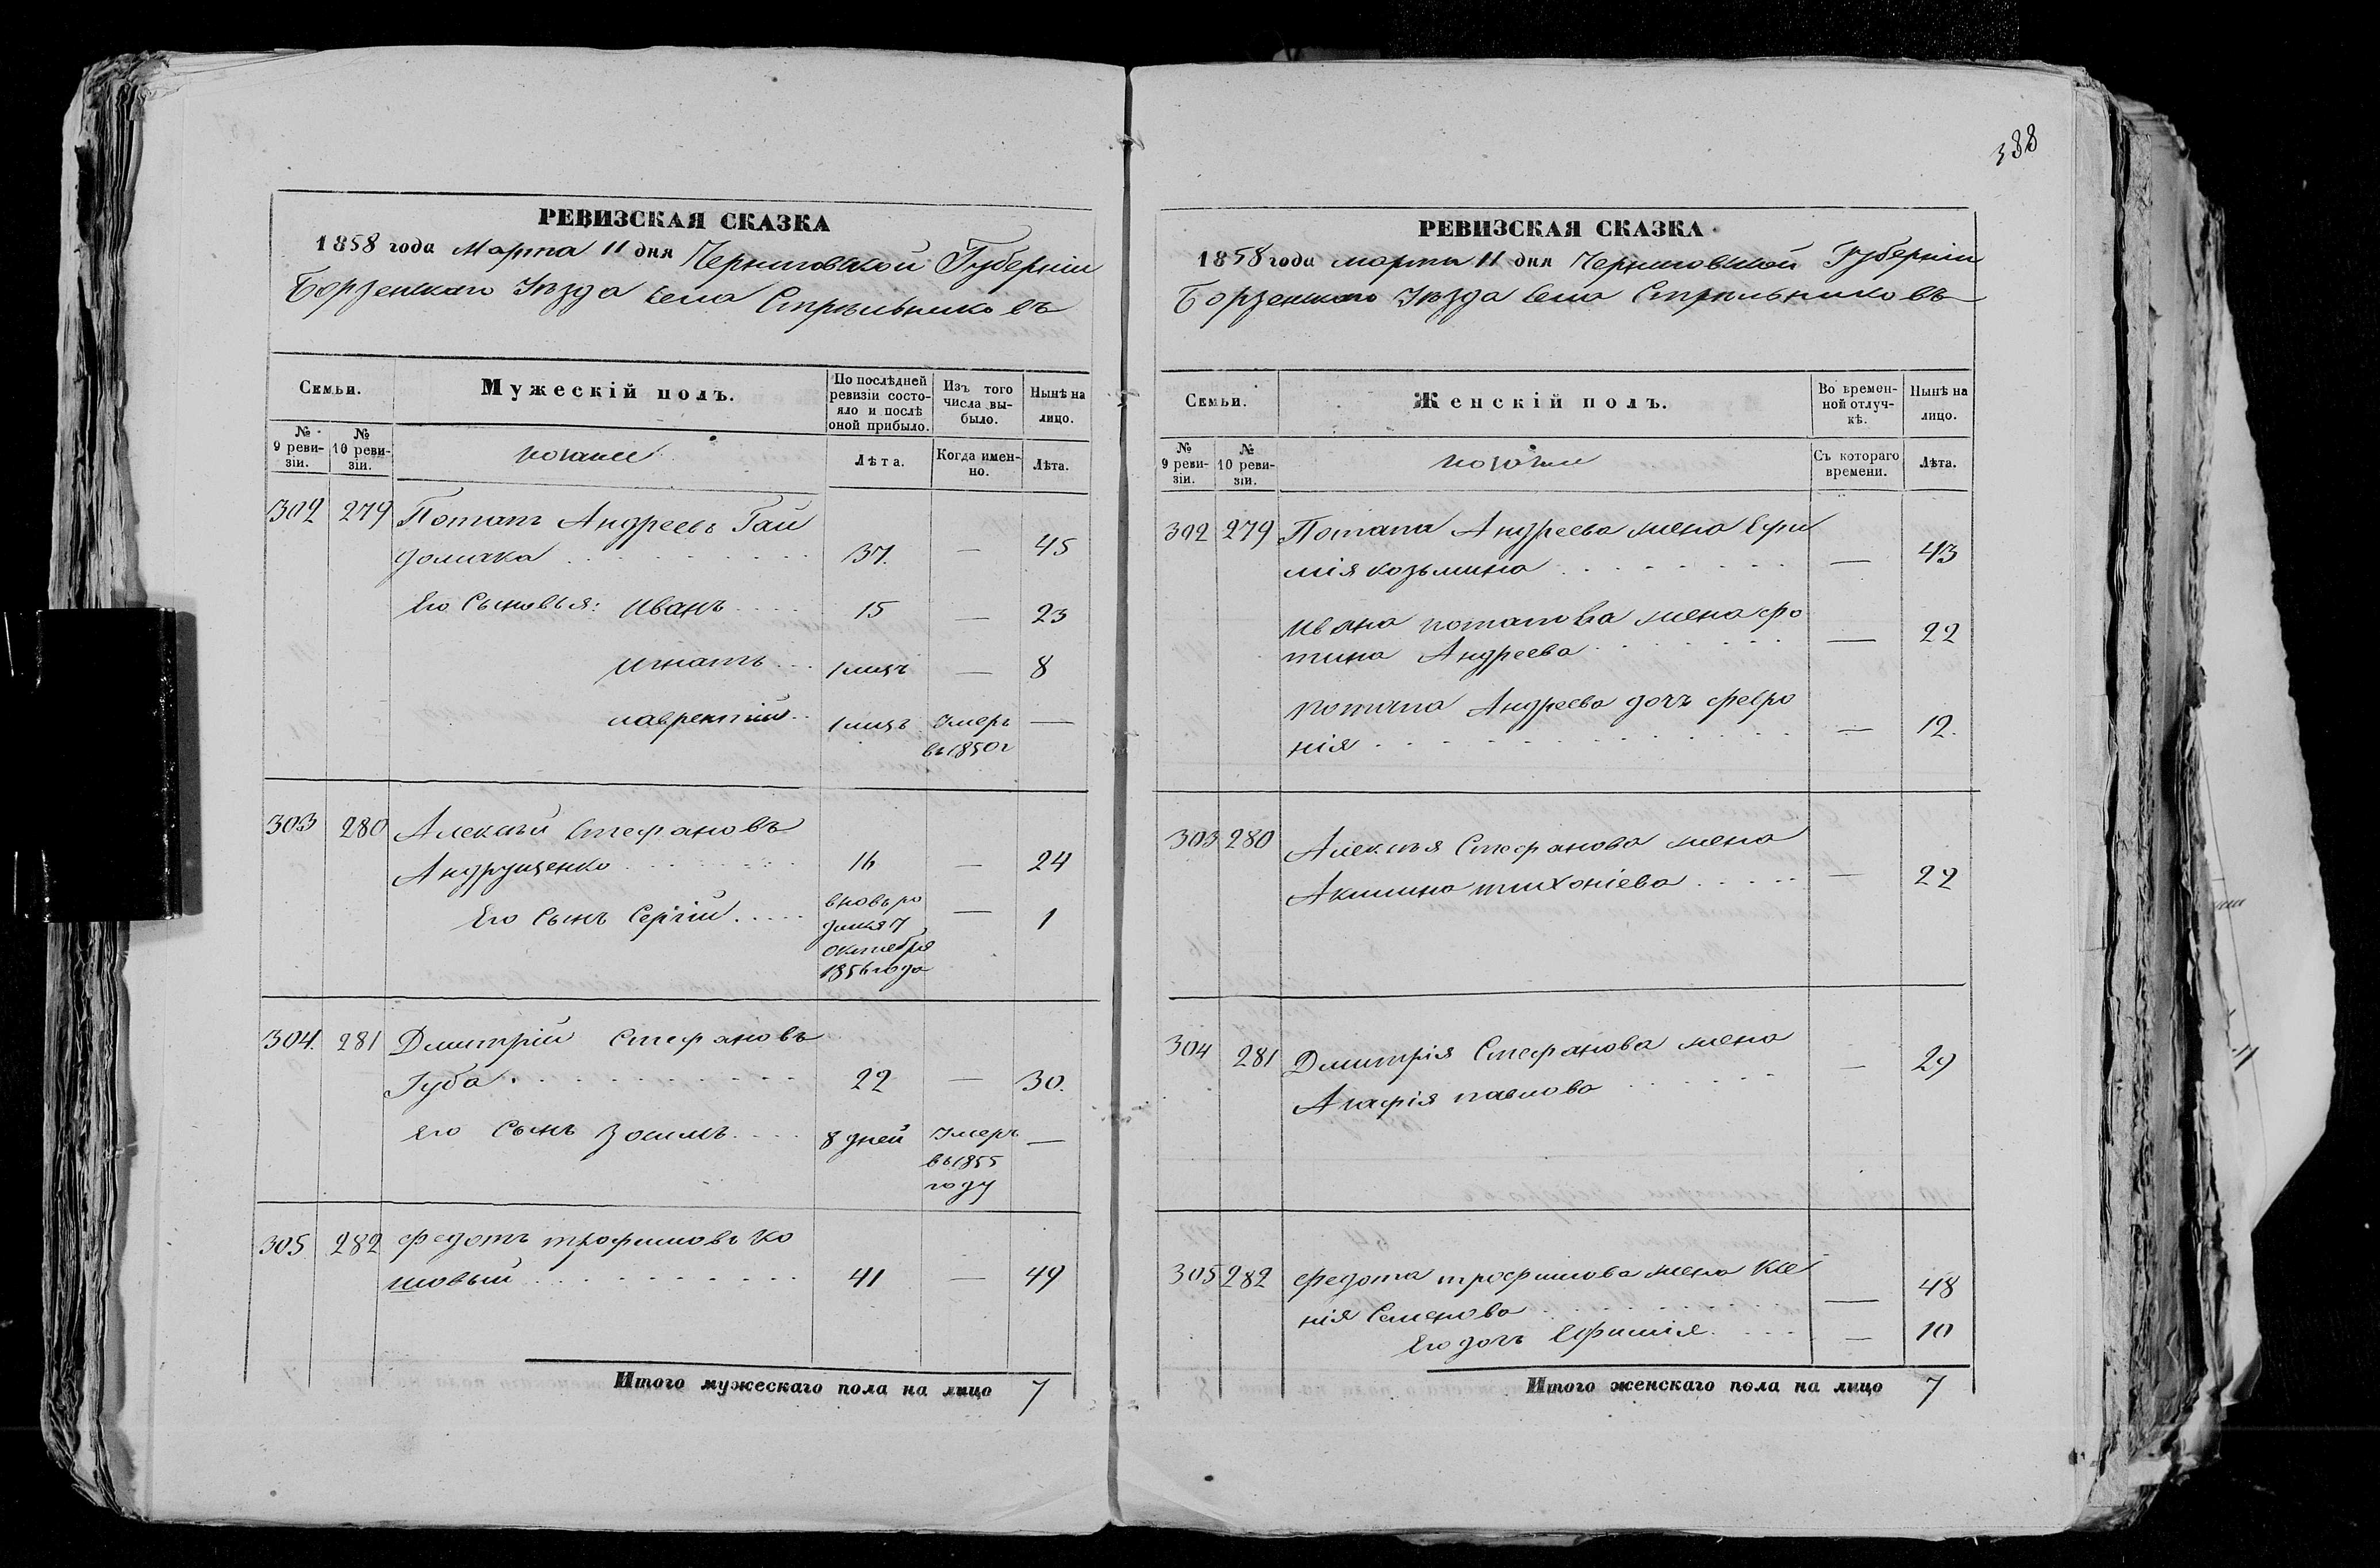 388
РЕВИЗСКАЯ СКАЗКА
1858 года Марта 11 дня Черниговской Губерніи
Борзенскаго Уѣзда Села Стрѣльниковъ
Семьи.
Мужескій полъ.
По послѣдней ревизіи состояло и послѣ оной прибыло.
Изъ того числа выбыло.
Нынѣ на лицо.
№ 9 ревизіи.
№ 10 ревизіи.
Лѣта.
Когда именно.
Лѣта.
302 279 Потапъ Андреевъ Гай
37. — 45
Его Сыновья: Иванъ 15 — 23
Игнатъ 1 мѣсъ — 8
Лаврентій 1 мѣсъ Умеръ —
въ 1850 г
303 280 Алексѣй Стефановъ
Андрущенко 16 — 24
Его Сынъ Сергій вновь ро — 1
Октября
1856 года
304. 281 Дмитрій Стефановъ
Губа 22 — 30.
Его Сынъ Зосимъ 8 дней Умеръ —
въ 1855
году
305 282 Федотъ Трофимовъ Ко
шовый 41 — 49
Итого мужескаго пола на лицо 7
РЕВИЗСКАЯ СКАЗКА
1858 года марта 11 дня Черниговской Губерніи
Борзенскаго Уѣзда Села Стрѣльниковъ
Семьи.
Женскій полъ.
Во временной отлучкѣ.
Нынѣ на лицо.
№ 9 ревизіи.
№ 10 ревизіи.
Съ котораго времени.
Лѣта.
302 279 Потапа Андреева жена Ефи
мія козьмина — 43
Ивана потапова жена Фо
тина Андреева — 22
Потапа Андреева дочь Февро
нія — 12.
303 280 Алексѣя Стефанова жена
Акилина тихоніева — 22
304 281 Дмитрія Стефанова жена
Агафія павлова — 29
305 282 Федота трофимова жена Ксе
нія Семенова — 48
Его дочь Ефимія — 10
Итого женскаго пола на лицо 7